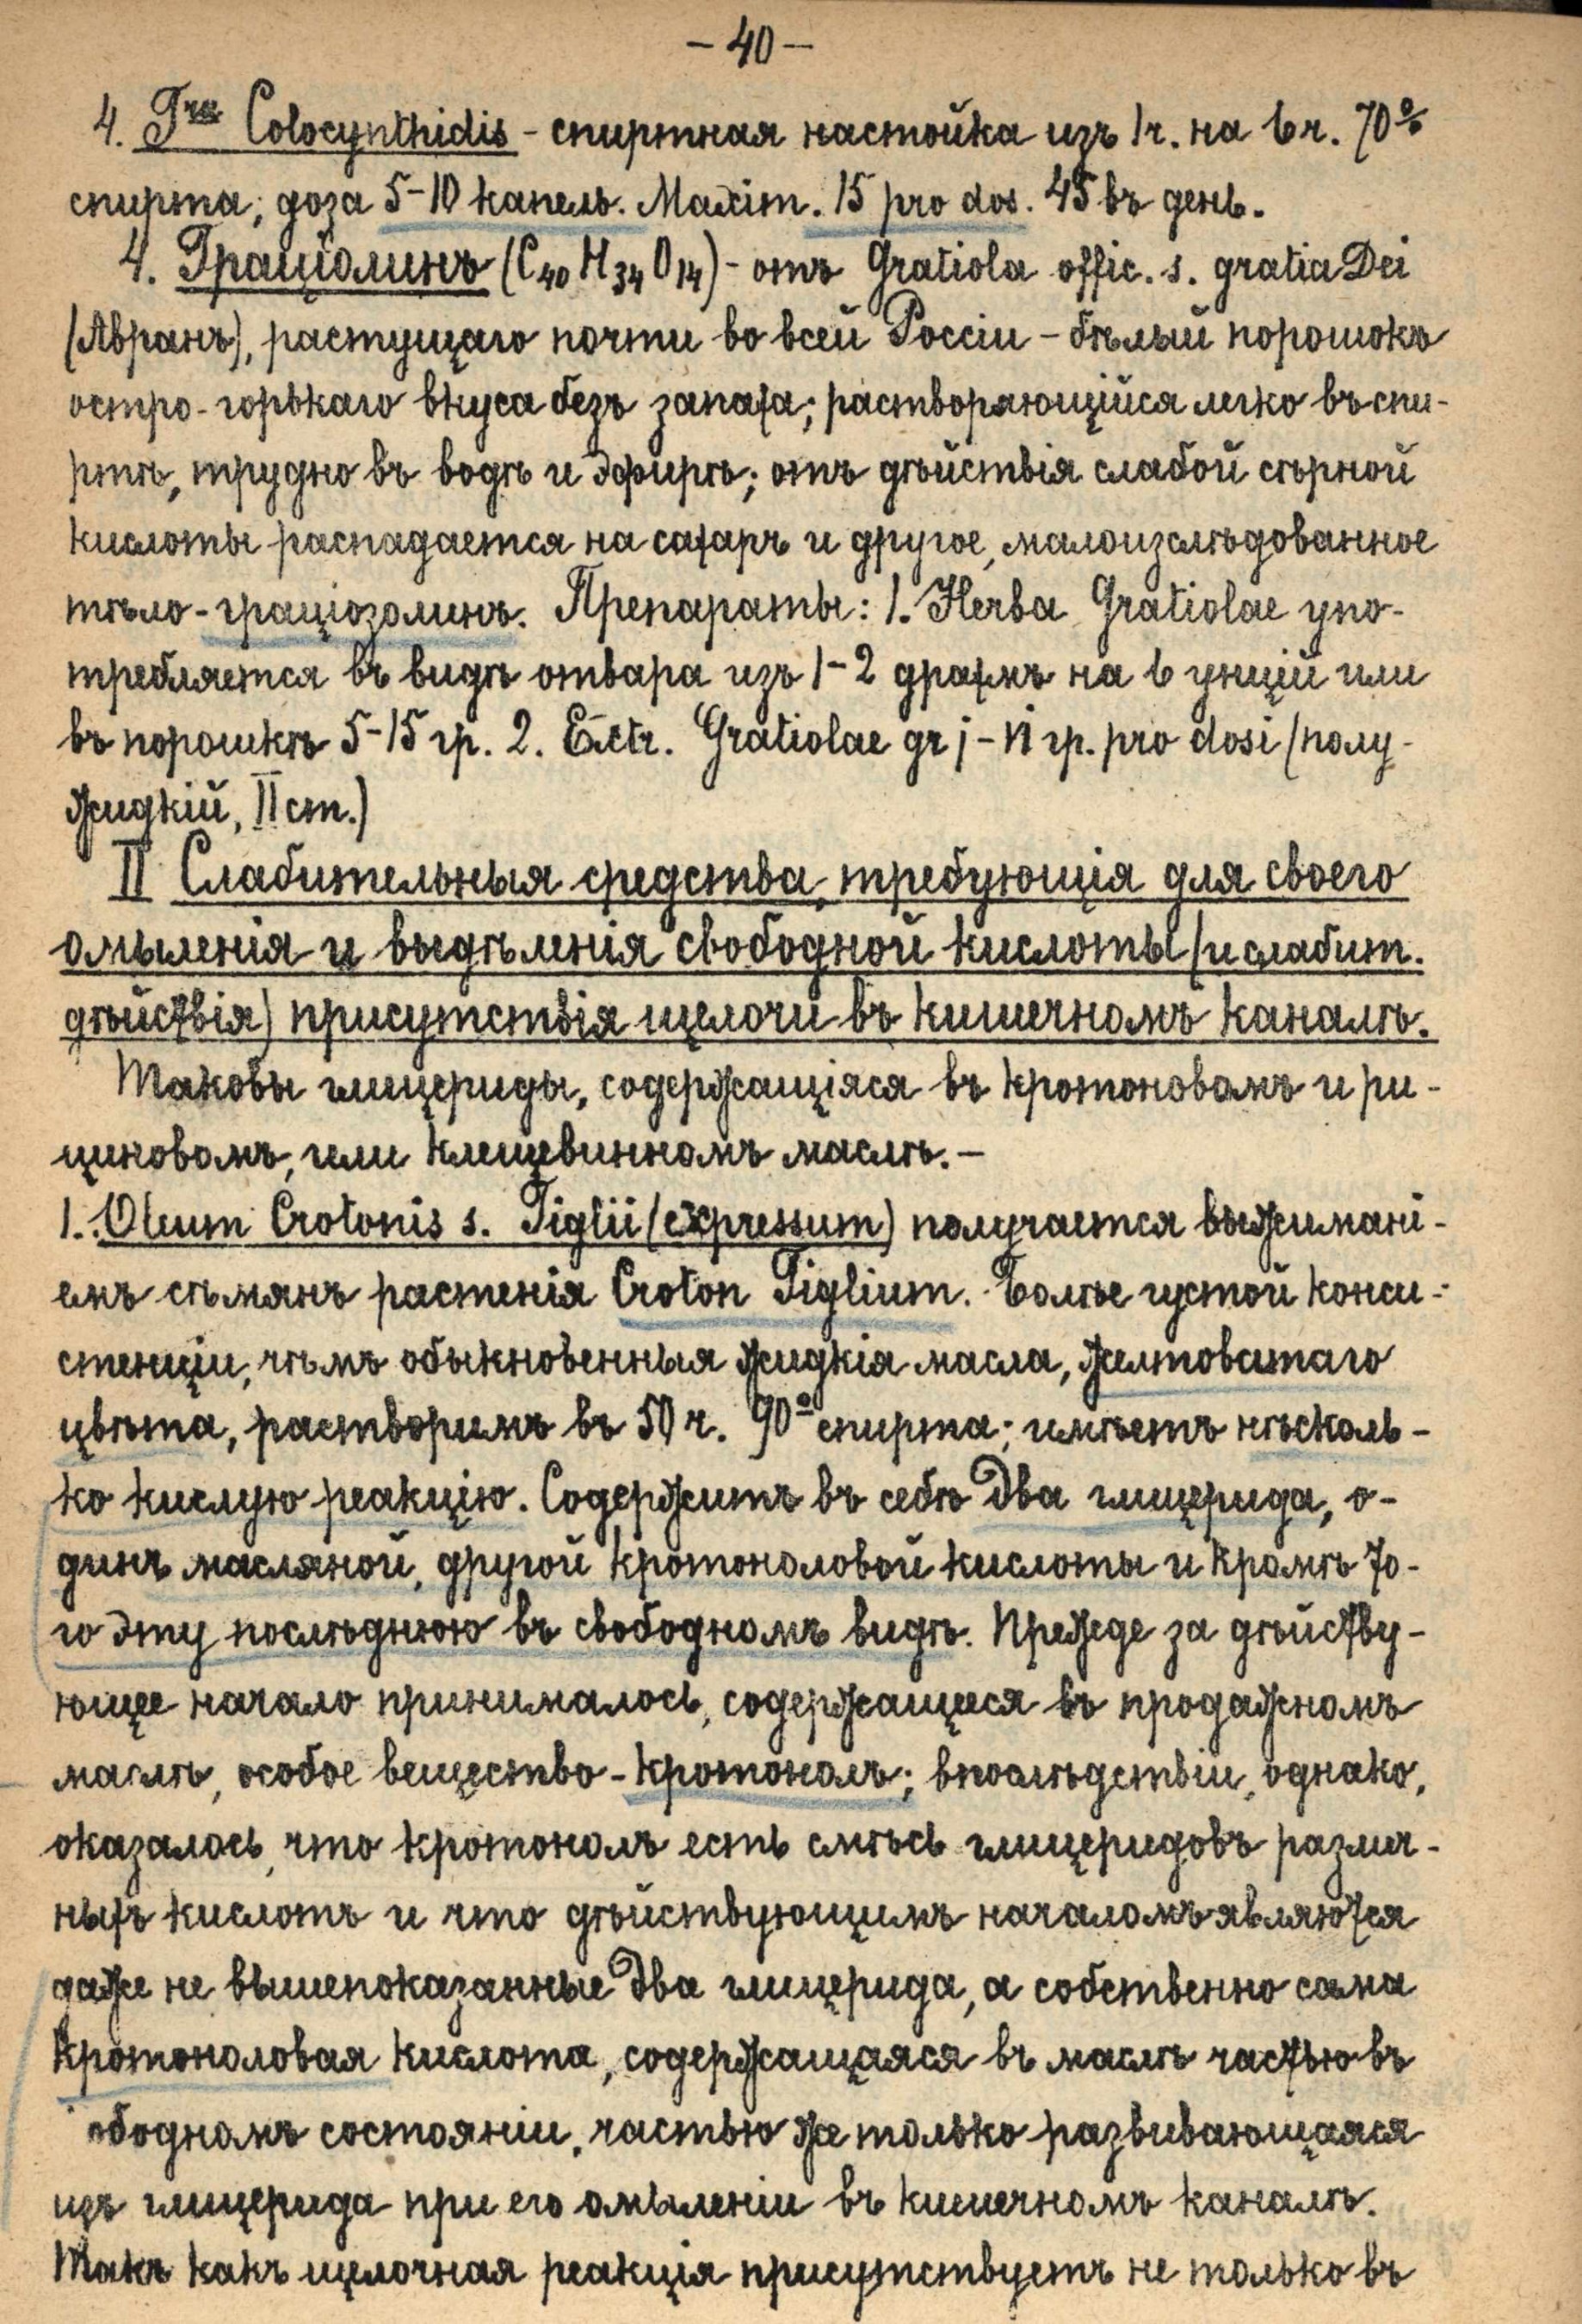 – 40 –
4. Tra Colocynthidis – спиртная настойка изъ 1 ч. на 6 ч. 70%
спирта; доза 5–10 капель. Maxim. 15 pro dos. 45 въ день.
4. Граціолинъ (C40 H34 O14) – отъ Gratiola offic. s. gratia Dei
(Авранъ), растущаго почти во всей Россіи – бѣлый порошокъ
остро-горькаго вкуса безъ запаха; растворяющійся легко въ спи-
ртѣ, трудно въ водѣ и эфирѣ; отъ дѣйствія слабой сѣрной
кислоты распадается на сахаръ и другое, малоизслѣдованное
тѣло – граціозолинъ. Препараты: 1. Herba Gratiolae упо-
требляется въ видѣ отвара изъ 1–2 драхмъ на 6 унцій или
въ порошкѣ 5–15 гр. 2. Extr. Gratiolae gr j – ij гр. pro dosi (полу-
жидкій, II ст.)
II Слабительныя средства, требующія для своего
омыленія и выдѣленія свободной кислоты (и слабит.
дѣйствія) присутствія щелочи въ кишечномъ каналѣ.
Таковы глицериды, содержащіяся въ кротоновомъ и ри-
циновомъ, или клещевинномъ маслѣ. –
1. Oleum Crotonis s. Tiglii (expressum) получается выжимані-
емъ сѣмянъ растенія Croton Tiglium. Болѣе густой конси-
стенціи, чѣмъ обыкновенныя жидкія масла, желтоватаго
цвѣта, растворимъ въ 50 ч. 90° спирта; имѣетъ нѣсколь-
ко кислую реакцію. Содержитъ въ себѣ два глицерида, о-
динъ масляной, другой кротоноловой кислоты и кромѣ то-
го эту послѣднюю въ свободномъ видѣ. Прежде за дѣйству-
ющее начало принималось, содержащееся въ продажномъ
маслѣ, особое вещество – кротонолъ; впослѣдствіи, однако,
оказалось, что кротонолъ есть смѣсь глицеридовъ различ-
ныхъ кислотъ и что дѣйствующимъ началомъ являются
даже не вышепоказанные два глицерида, а собственно сама
кротоноловая кислота, содержащаяся въ маслѣ частью въ
ободномъ состояніи, частью же только развивающаяся
изъ глицерида при его омыленіи въ кишечномъ каналѣ.
Такъ какъ щелочная реакція присутствуетъ не только въ